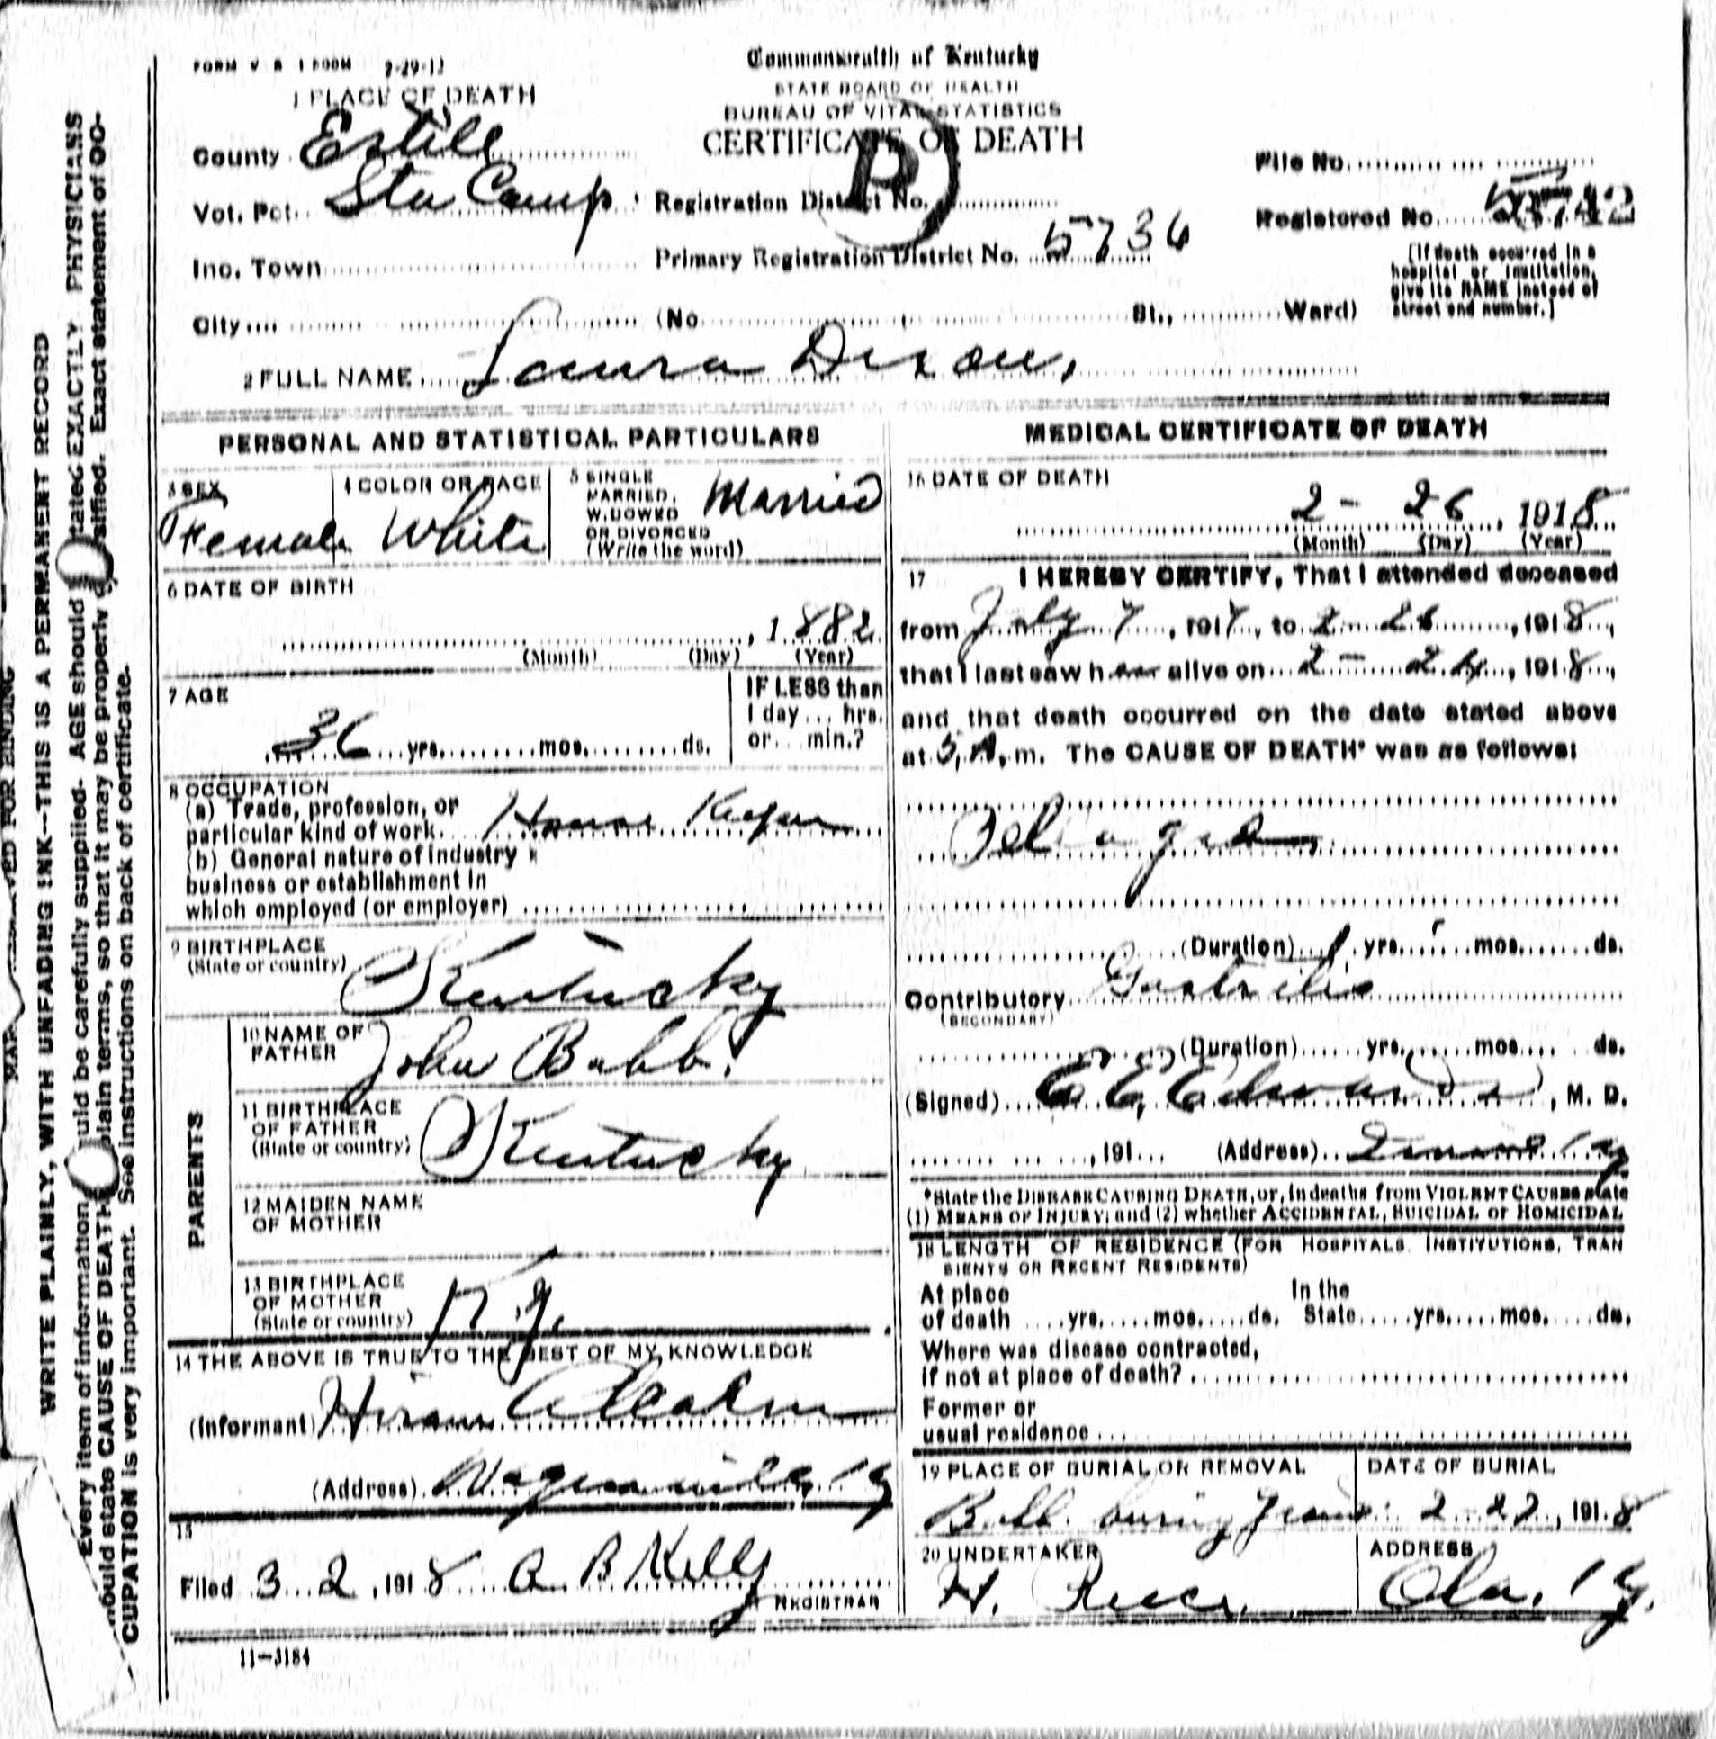 FORM V S 1 500M 9-29-12
Commonwealth of Kentucky
STATE BOARD OF HEALTH
BUREAU OF VITAL STATISTICS
CERTIFICATE OF DEATH
1 PLACE OF DEATH
County Estill
Vot. Pct. Sta Camp
Inc. Town
City (No. St., Ward)
Registration District No.
Primary Registration District No. 5736
File No.
Registered No.
[If death occurred in a
hospital or institution,
give its NAME instead of
street and number.]
2 FULL NAME Laura Dixon,
PERSONAL AND STATISTICAL PARTICULARS
3 SEX
Female
4 COLOR OR RACE
White
5 SINGLE
MARRIED,
WIDOWED
OR DIVORCED
(Write the word)
Married
6 DATE OF BIRTH
, 1882
(Month) (Day) (Year)
7 AGE
36 yrs. mos. ds.
IF LESS than
1 day ... hrs.
or ... min.?
8 OCCUPATION
(a) Trade, profession, or
particular kind of work House Keeper
(b) General nature of industry
business or establishment in
which employed (or employer)
9 BIRTHPLACE
(State or country)
Kentucky
PARENTS
10 NAME OF
FATHER
John Babb.
11 BIRTHPLACE
OF FATHER
(State or country)
Kentucky
12 MAIDEN NAME
OF MOTHER
13 BIRTHPLACE
OF MOTHER
(State or country)
Ky.
14 THE ABOVE IS TRUE TO THE BEST OF MY KNOWLEDGE
(Informant) Hiram
(Address) Wagersville, Ky
15
Filed 3 2, 1918 A B Kelly
REGISTRAR
11-3184
MEDICAL CERTIFICATE OF DEATH
16 DATE OF DEATH
2 - 26, 1918
(Month) (Day) (Year)
17 I HEREBY CERTIFY, That I attended deceased
from July 7, 1917, to 2 - 26, 1918,
that I last saw her alive on 2 - 24, 1918,
and that death occurred on the date stated above
at m. The CAUSE OF DEATH* was as follows:
Pelagra
(Duration) 1 yrs. mos. ds.
Contributory Gastritis
(SECONDARY)
(Duration) yrs. mos. ds.
(Signed) E E Edwards, M. D.
, 191 (Address) Ky
*State the DISEASE CAUSING DEATH, or, in deaths from VIOLENT CAUSES state
(1) MEANS OF INJURY; and (2) whether ACCIDENTAL, SUICIDAL or HOMICIDAL
18 LENGTH OF RESIDENCE (FOR HOSPITALS, INSTITUTIONS, TRAN
SIENTS OR RECENT RESIDENTS)
At place In the
of death yrs. mos. ds. State yrs. mos. ds.
Where was disease contracted,
if not at place of death?
Former or
usual residence
19 PLACE OF BURIAL OR REMOVAL
Babb
DATE OF BURIAL
2 - 27, 1918
20 UNDERTAKER
H.
ADDRESS
Ky.
WRITE PLAINLY, WITH UNFADING INK--THIS IS A PERMANENT RECORD
Every item of information should be carefully supplied. AGE should be stated EXACTLY. PHYSICIANS
should state CAUSE OF DEATH in plain terms, so that it may be properly classified. Exact statement of OC-
CUPATION is very important. See instructions on back of certificate.